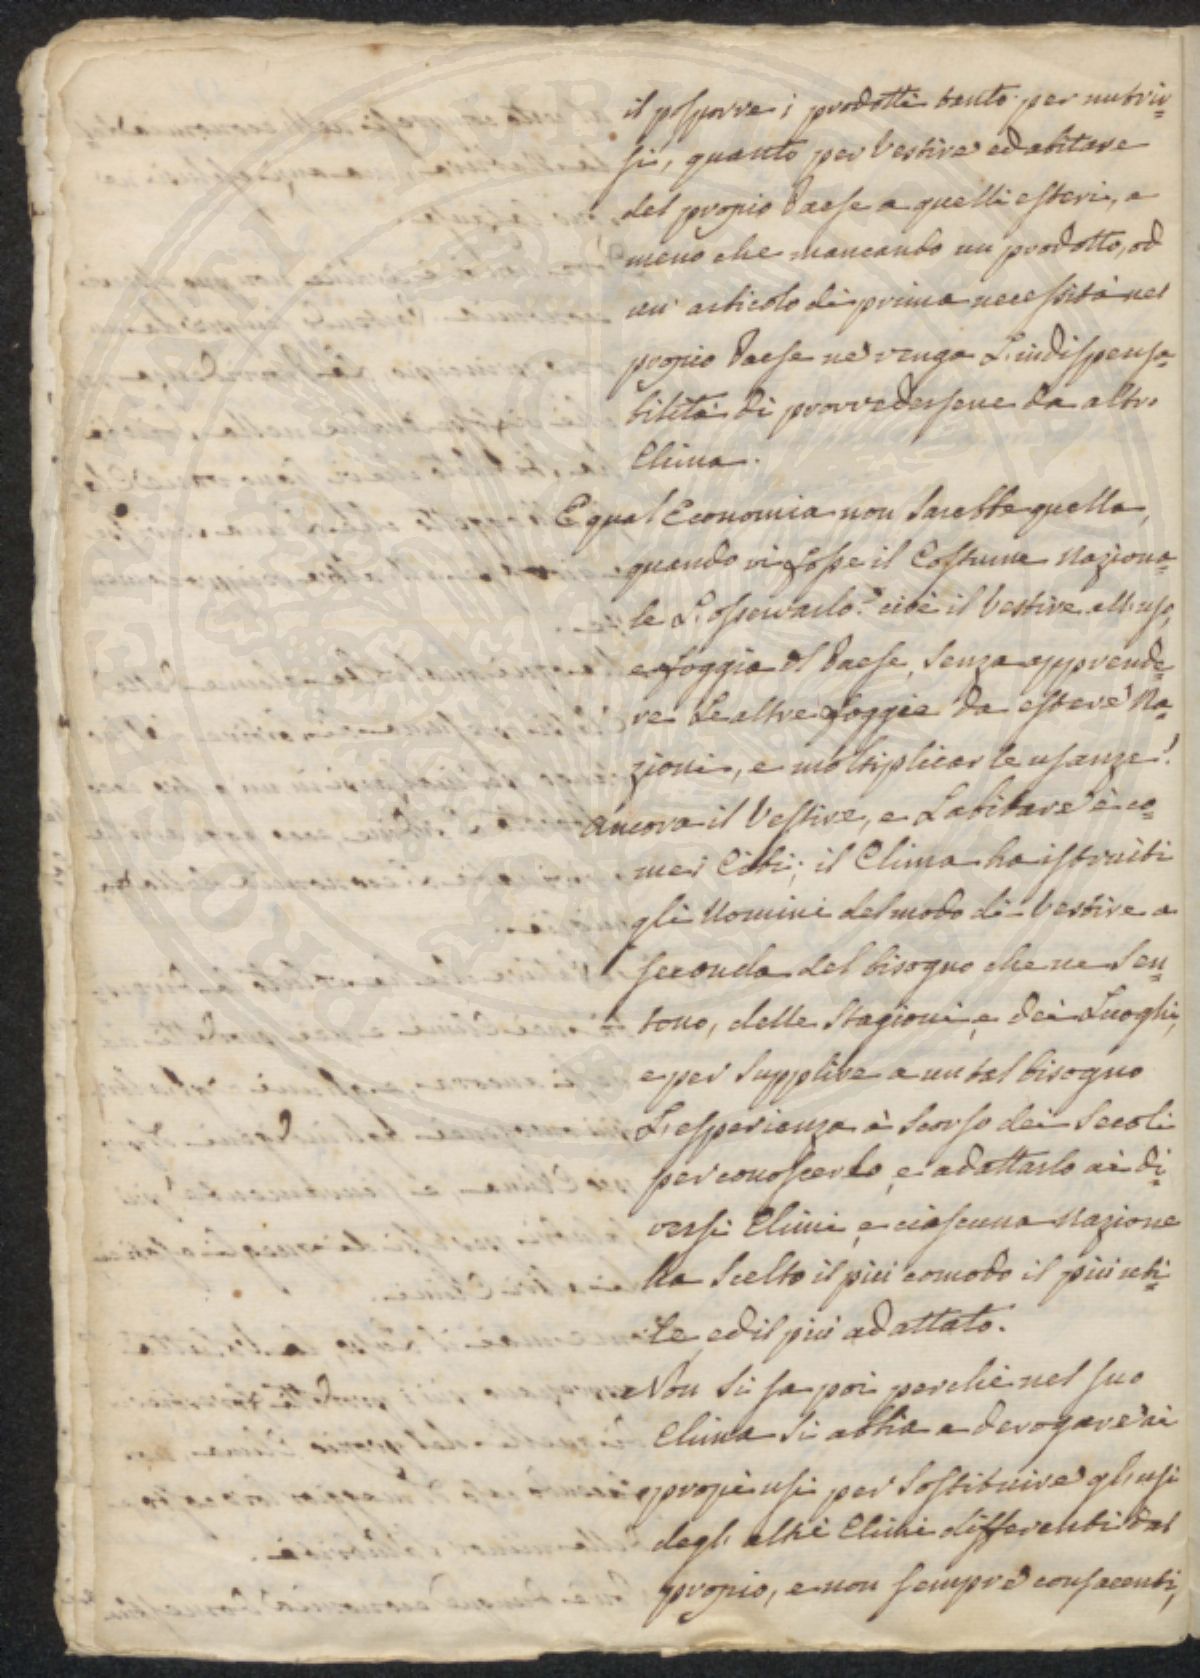 il posporre i prodotti tanto per nutrir=
si, quanto per Vestire ed abitare
del propio Paese a quelli esteri, a
meno che mancando un prodotto, od
un' articolo di prima necessità nel
propio Paese ne venga L'indispensa=
bilità di provvedersene da altro
Clima.
E qual Economia non sarebbe quella,
quando vi fosse il Costume Naziona=
le L'osservarlo? cioè il Vestire all'uso,
e foggia del Paese, senza apprende=
re Le altre foggie da estere Na=
zioni, e moltiplicar le usanze!
Ancora il Vestire, e L'abitare è co=
me i Cibi; il Clima ha istruiti
gli Uomini del modo di Vestire a
seconda del bisogno che ne sen=
tono, delle Stagioni, e dei Luoghi,
e per supplire a un tal bisogno
L'esperienza à scorso dei Secoli
per conoscerlo, e adattarlo ai di=
versi Climi, e ciascuna Nazione
ha scelto il più comodo il più uti=
le, ed il più adattato.
Non si sa poi perchè nel suo
Clima si abbia a derogare ai
propi usi per sostituire gli usi
degli altri Climi differenti dal
propio, e non sempre confacenti,